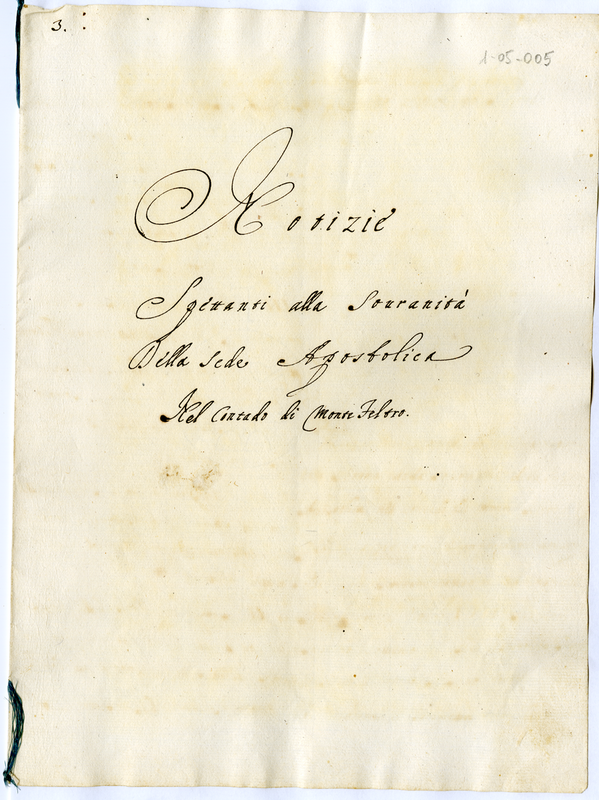 3.
1-05-005
Notizie
Spettanti alla Souranità
Della Sede Apostolica
Nel Contado di Monte Feltro.